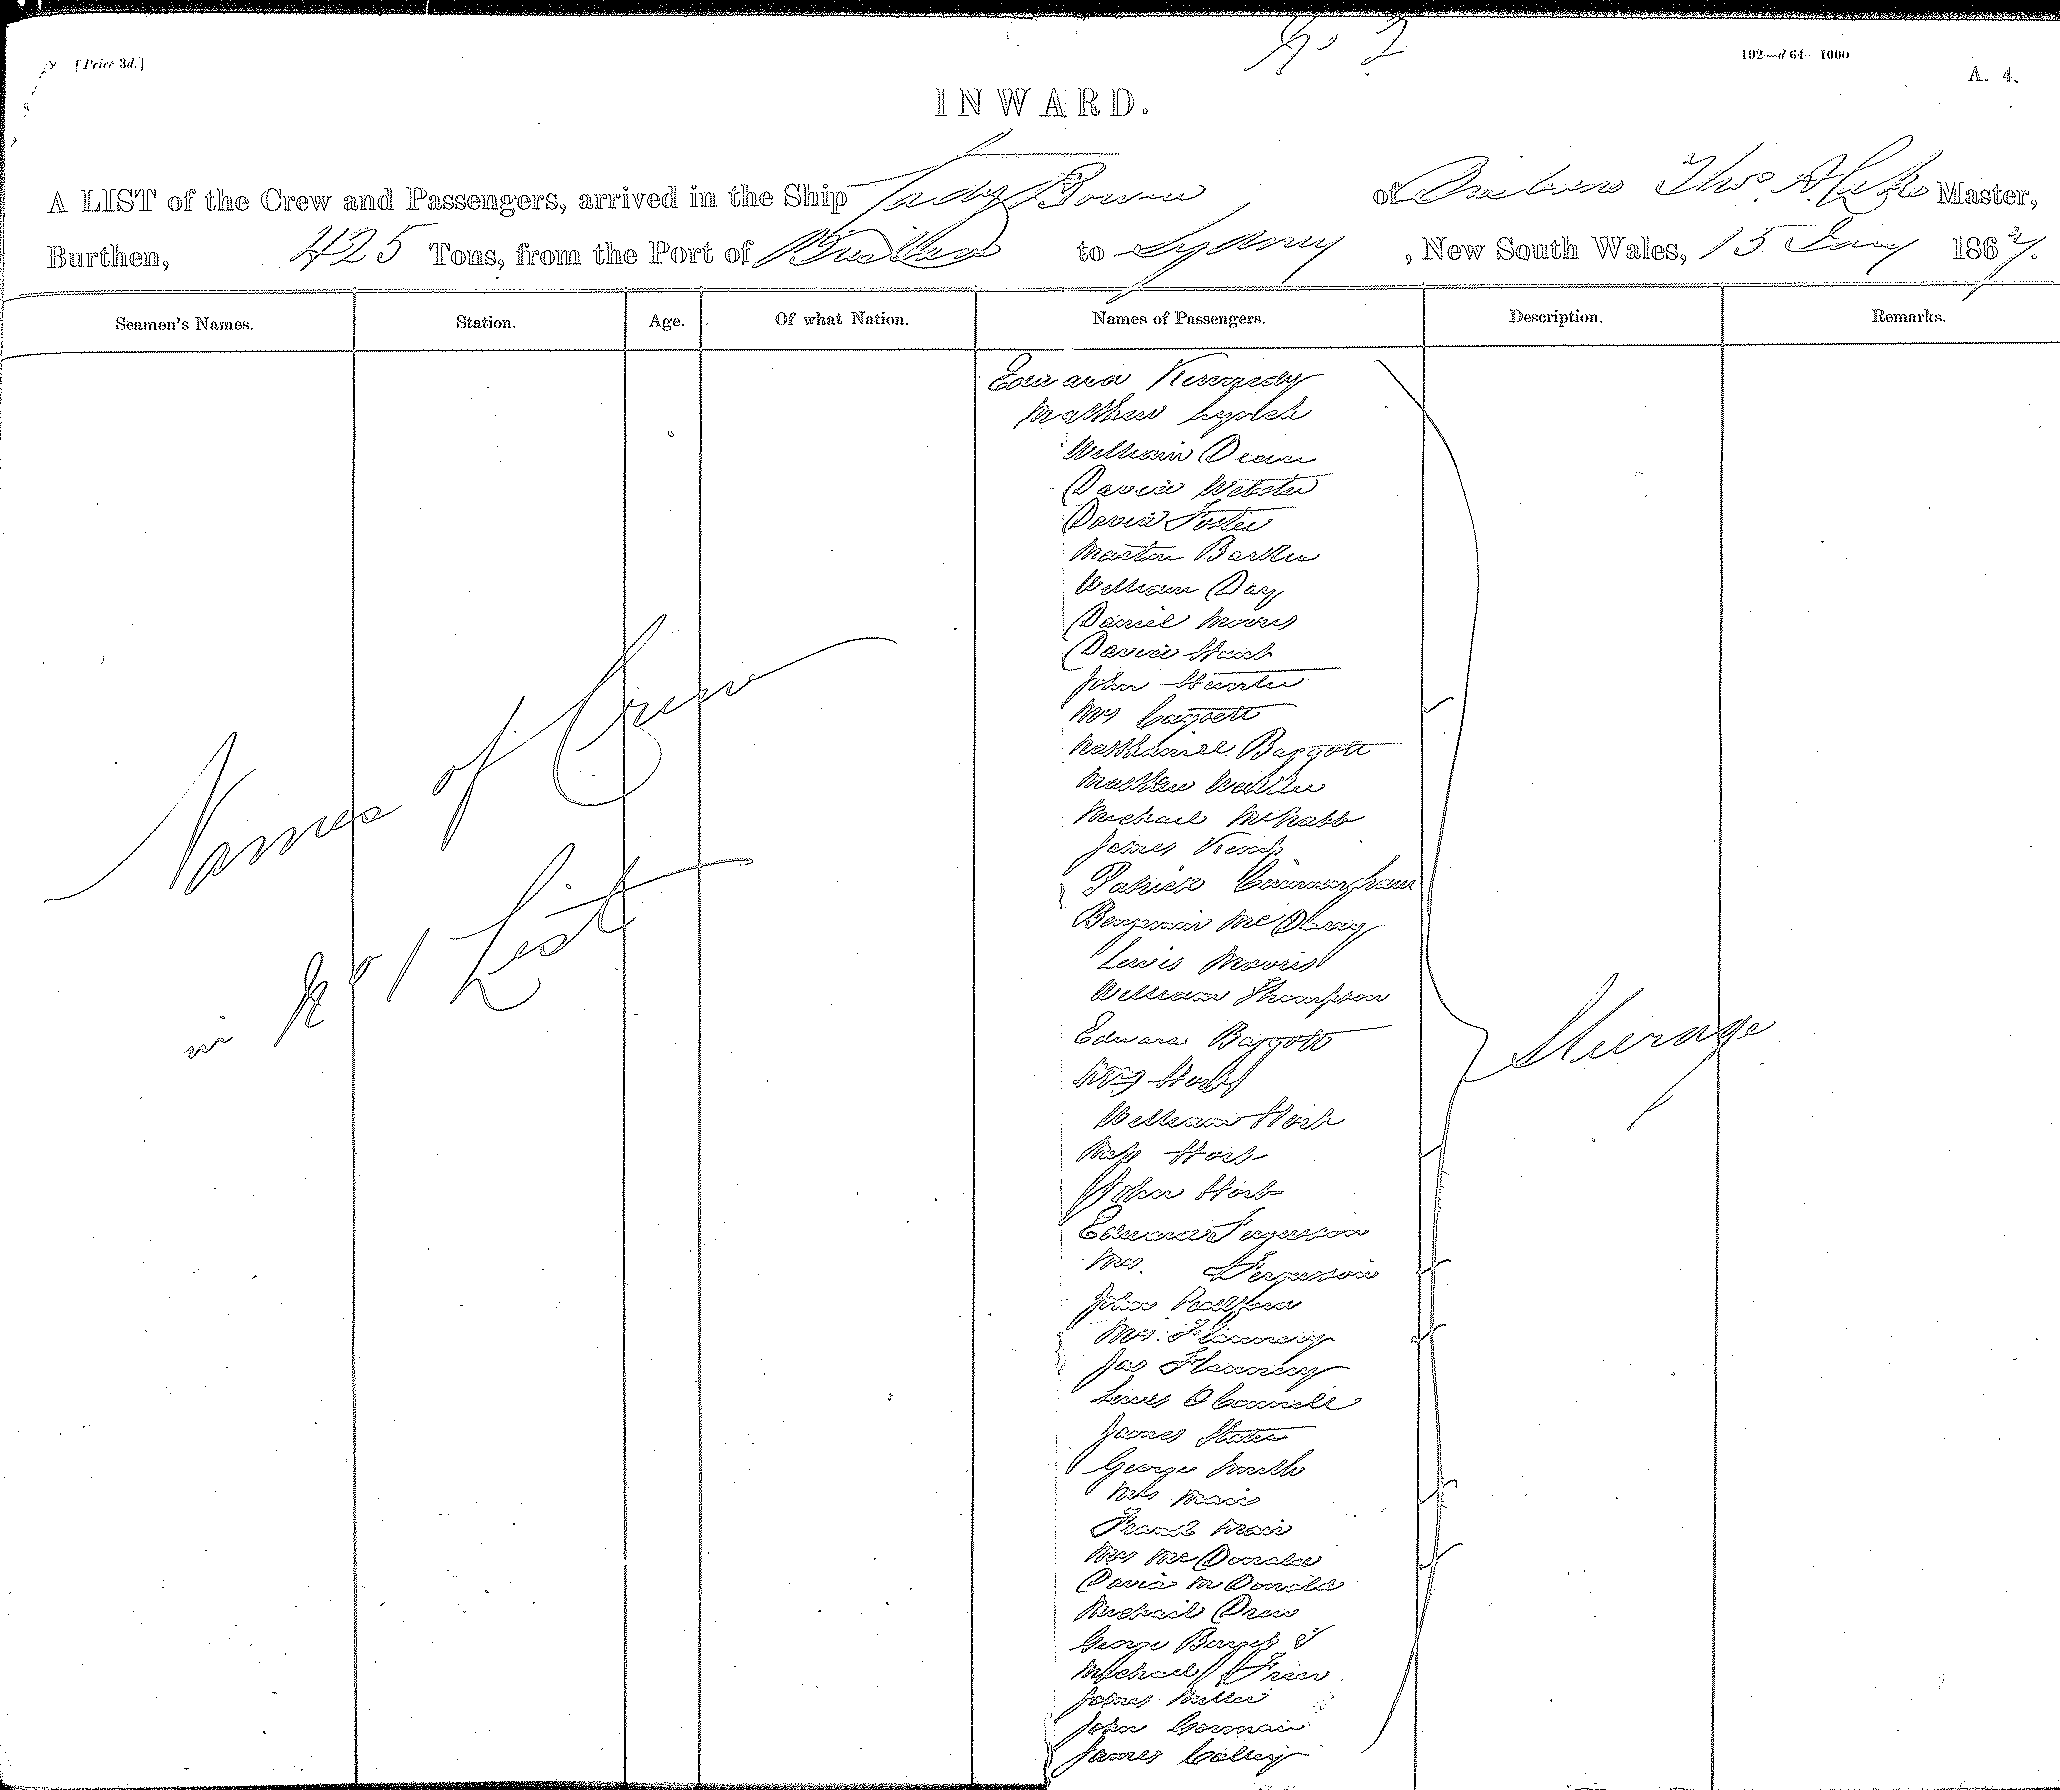 No 2
[Price 3d.]
192—d 64 1000
A. 4.
INWARD.
A LIST of the Crew and Passengers, arrived in the Ship Lady Bowen of Brisbane Thos. A. Lake Master,
Burthen, 425 Tons, from the Port of to Sydney, New South Wales, 15 Jany 1867.
Seamen's Names. Station. Age. Of what Nation. Names of Passengers. Description. Remarks.
Edward Kennedy
Matthew Lynch
William Dean
David Webster
David Foster
Martin Barker
William Day
Daniel Morris
David Hunt
John Hunter
Mrs
Nathaniel Baggott
Matthew
Michael McNabb
James
Patrick
Names of Crew
in No 1 List
Benjamin
Lewis Morris
William Thompson
Edward Baggott
Steerage
Mrs
William
Miss
John
Edward Ferguson
Mrs. Ferguson
John
Mrs. Flannery
Jas Flannery
O'Connell
James
George Smith
Mrs Mair
Frank Mair
Mrs McDonald
David McDonald
Michael Drew
George
Michael
James Miller
John Gorman
James